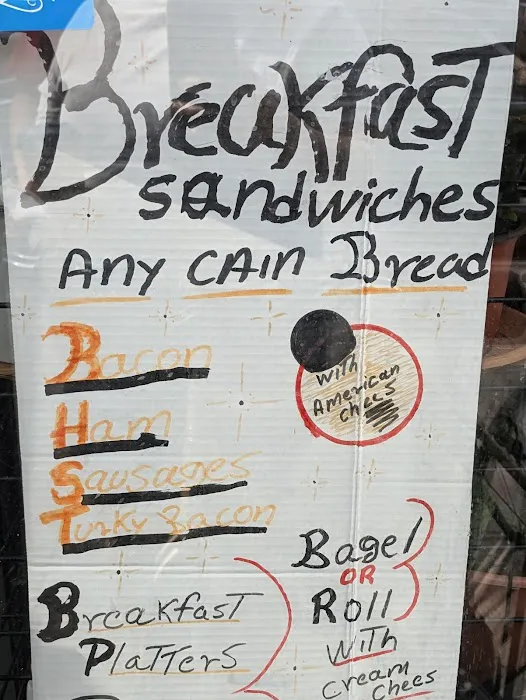 Breakfast
sandwiches
Any CAin Bread
Bacon
Ham
Sausages
Turky Bacon
with
American
chees
Bagel
OR
Roll
with
cream
chees
Breakfast
Platters